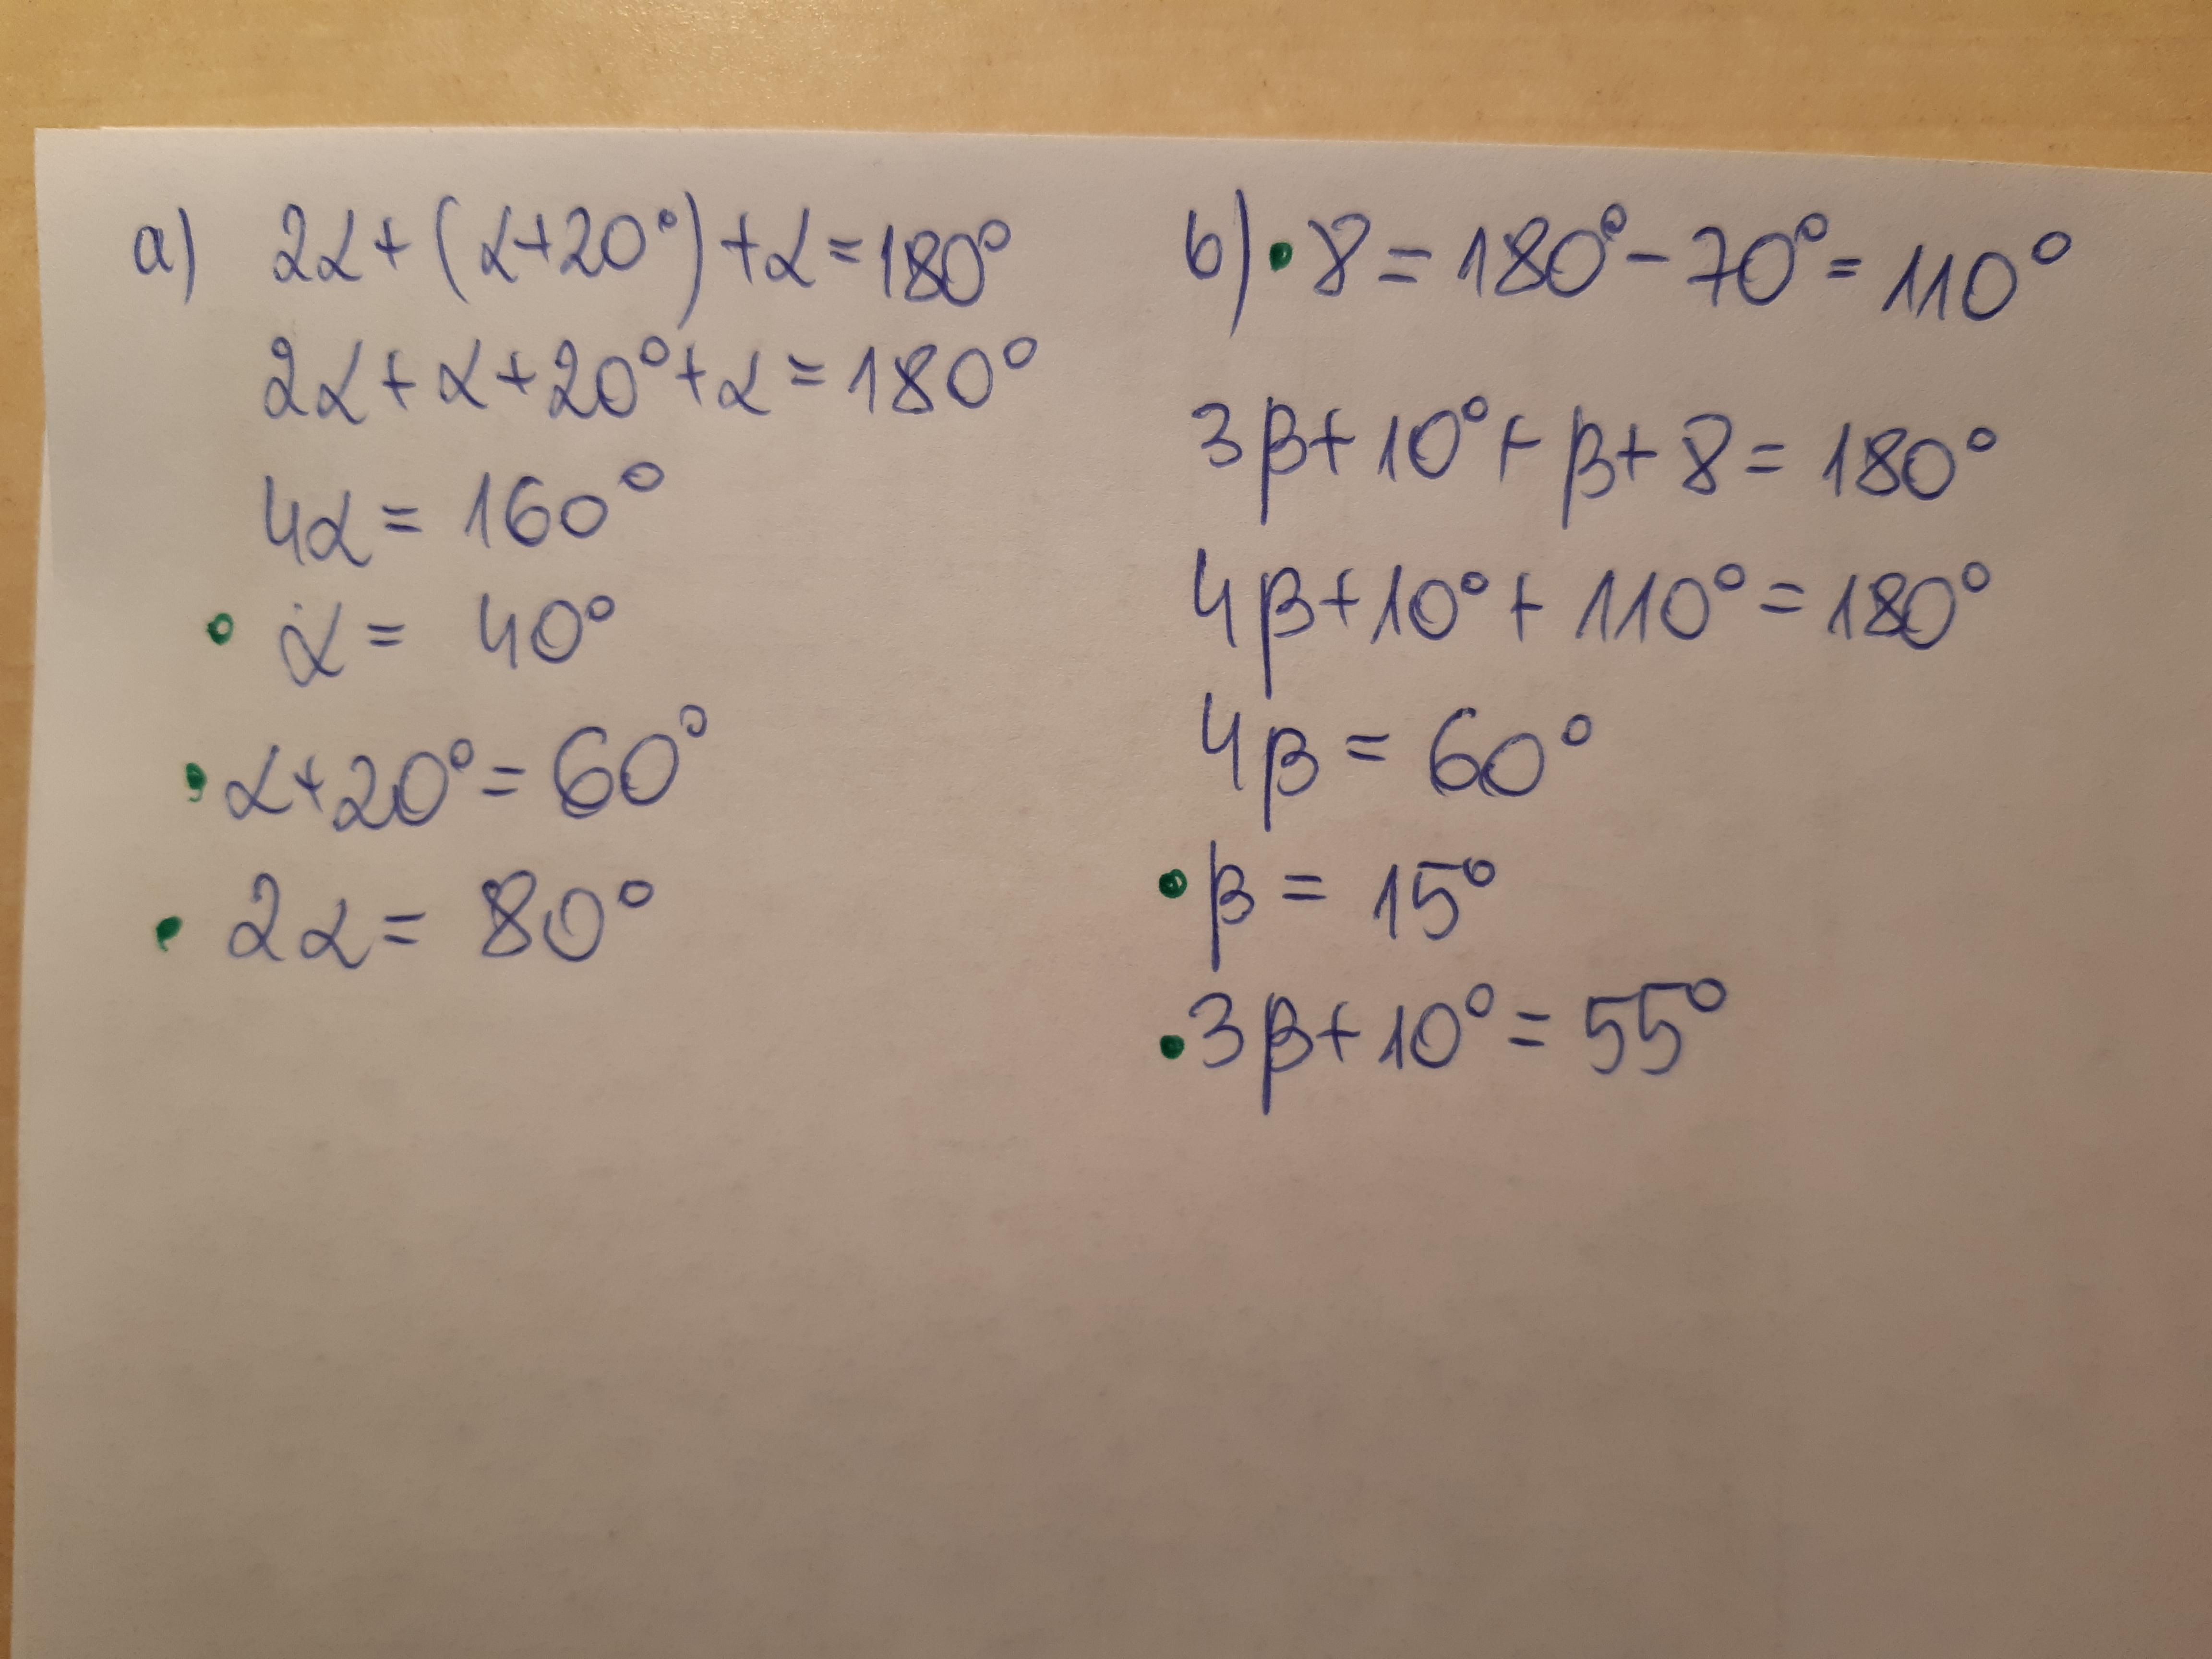 a) 2α+(α+20°)+α=180°
2α+α+20°+α=180°
4α=160°
α=40°
α+20°=60°
2α=80°
b) 8=180°-70°=110°
3β+10°+β+8=180°
4β+10°+110°=180°
4β=60°
β=15°
3β+10°=55°